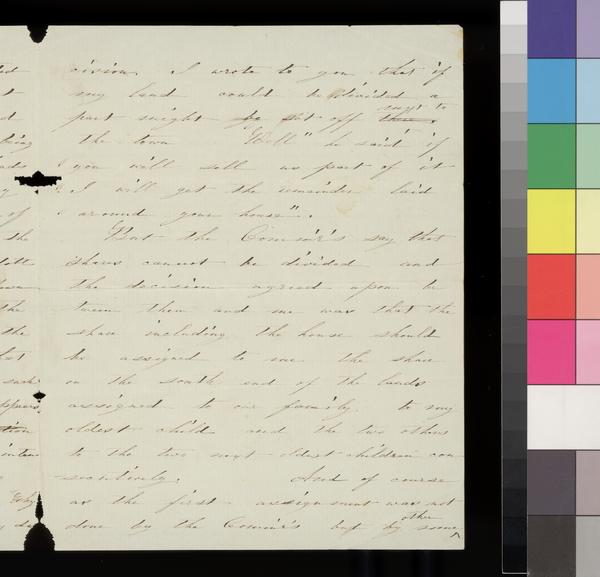 cision. I wrote to you that if
my land could be divided a
part might be set off next to
the town "Well" he said "if
you will sell us part of it
I will get the remainder laid
around your house".
But the Commr's say that
shares cannot be divided and
the decision agreed upon be
tween them and me was that the
share including the house should
be assigned to me the share
on the south end of the lands
assigned to our family to my
oldest child and the two others
to the two next oldest children con
secutively. And of course
as the first assignment was not
done by the Commr's but by some other